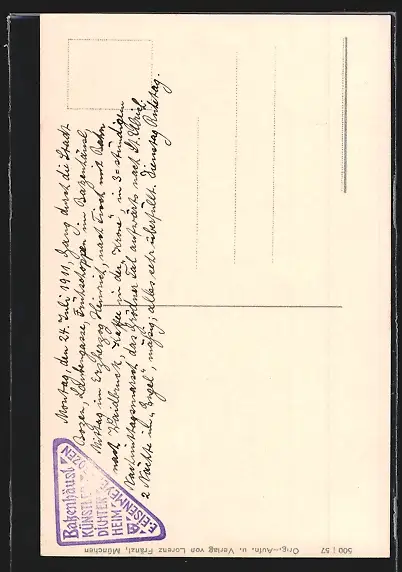 Montag, den 24. Juli 1911, Gang durch die Stadt
Bozen, Laubengasse, Frühschoppen im Batzenhäusl,
Mittag im Erzherzog Heinrich, nach Tisch mit Bahn
nach Waidbruck, Kaffee in der "Krone", in 3=stündigem
Nachmittagsmarsch das Grödner Tal aufwärts nach St. Ulrich
2 Nächte im "Engel", mäßig; alles sehr überfüllt. Dienstag Rasttag.
Batzenhäusl
KÜNSTLER
DICHTER
HEIM
BOZEN
F. EISENMEYER
500 | 57
Orig.-Aufn. u. Verlag von Lorenz Fränzl, München